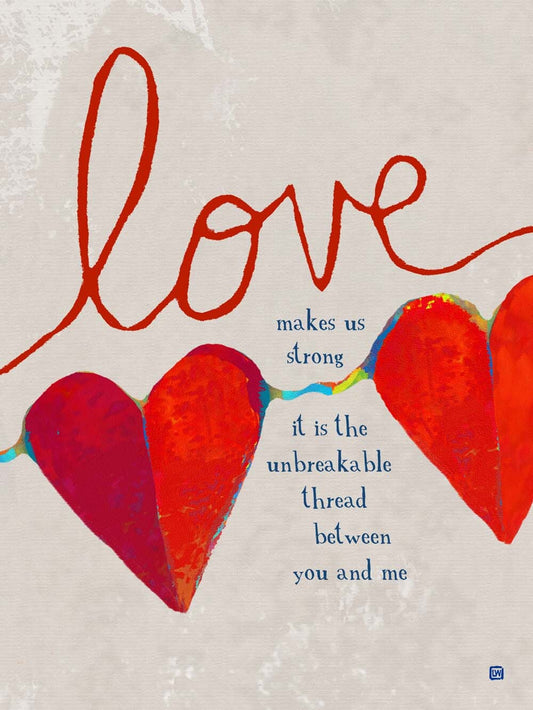 love
makes us
strong
it is the
unbreakable
thread
between
you and me
LW